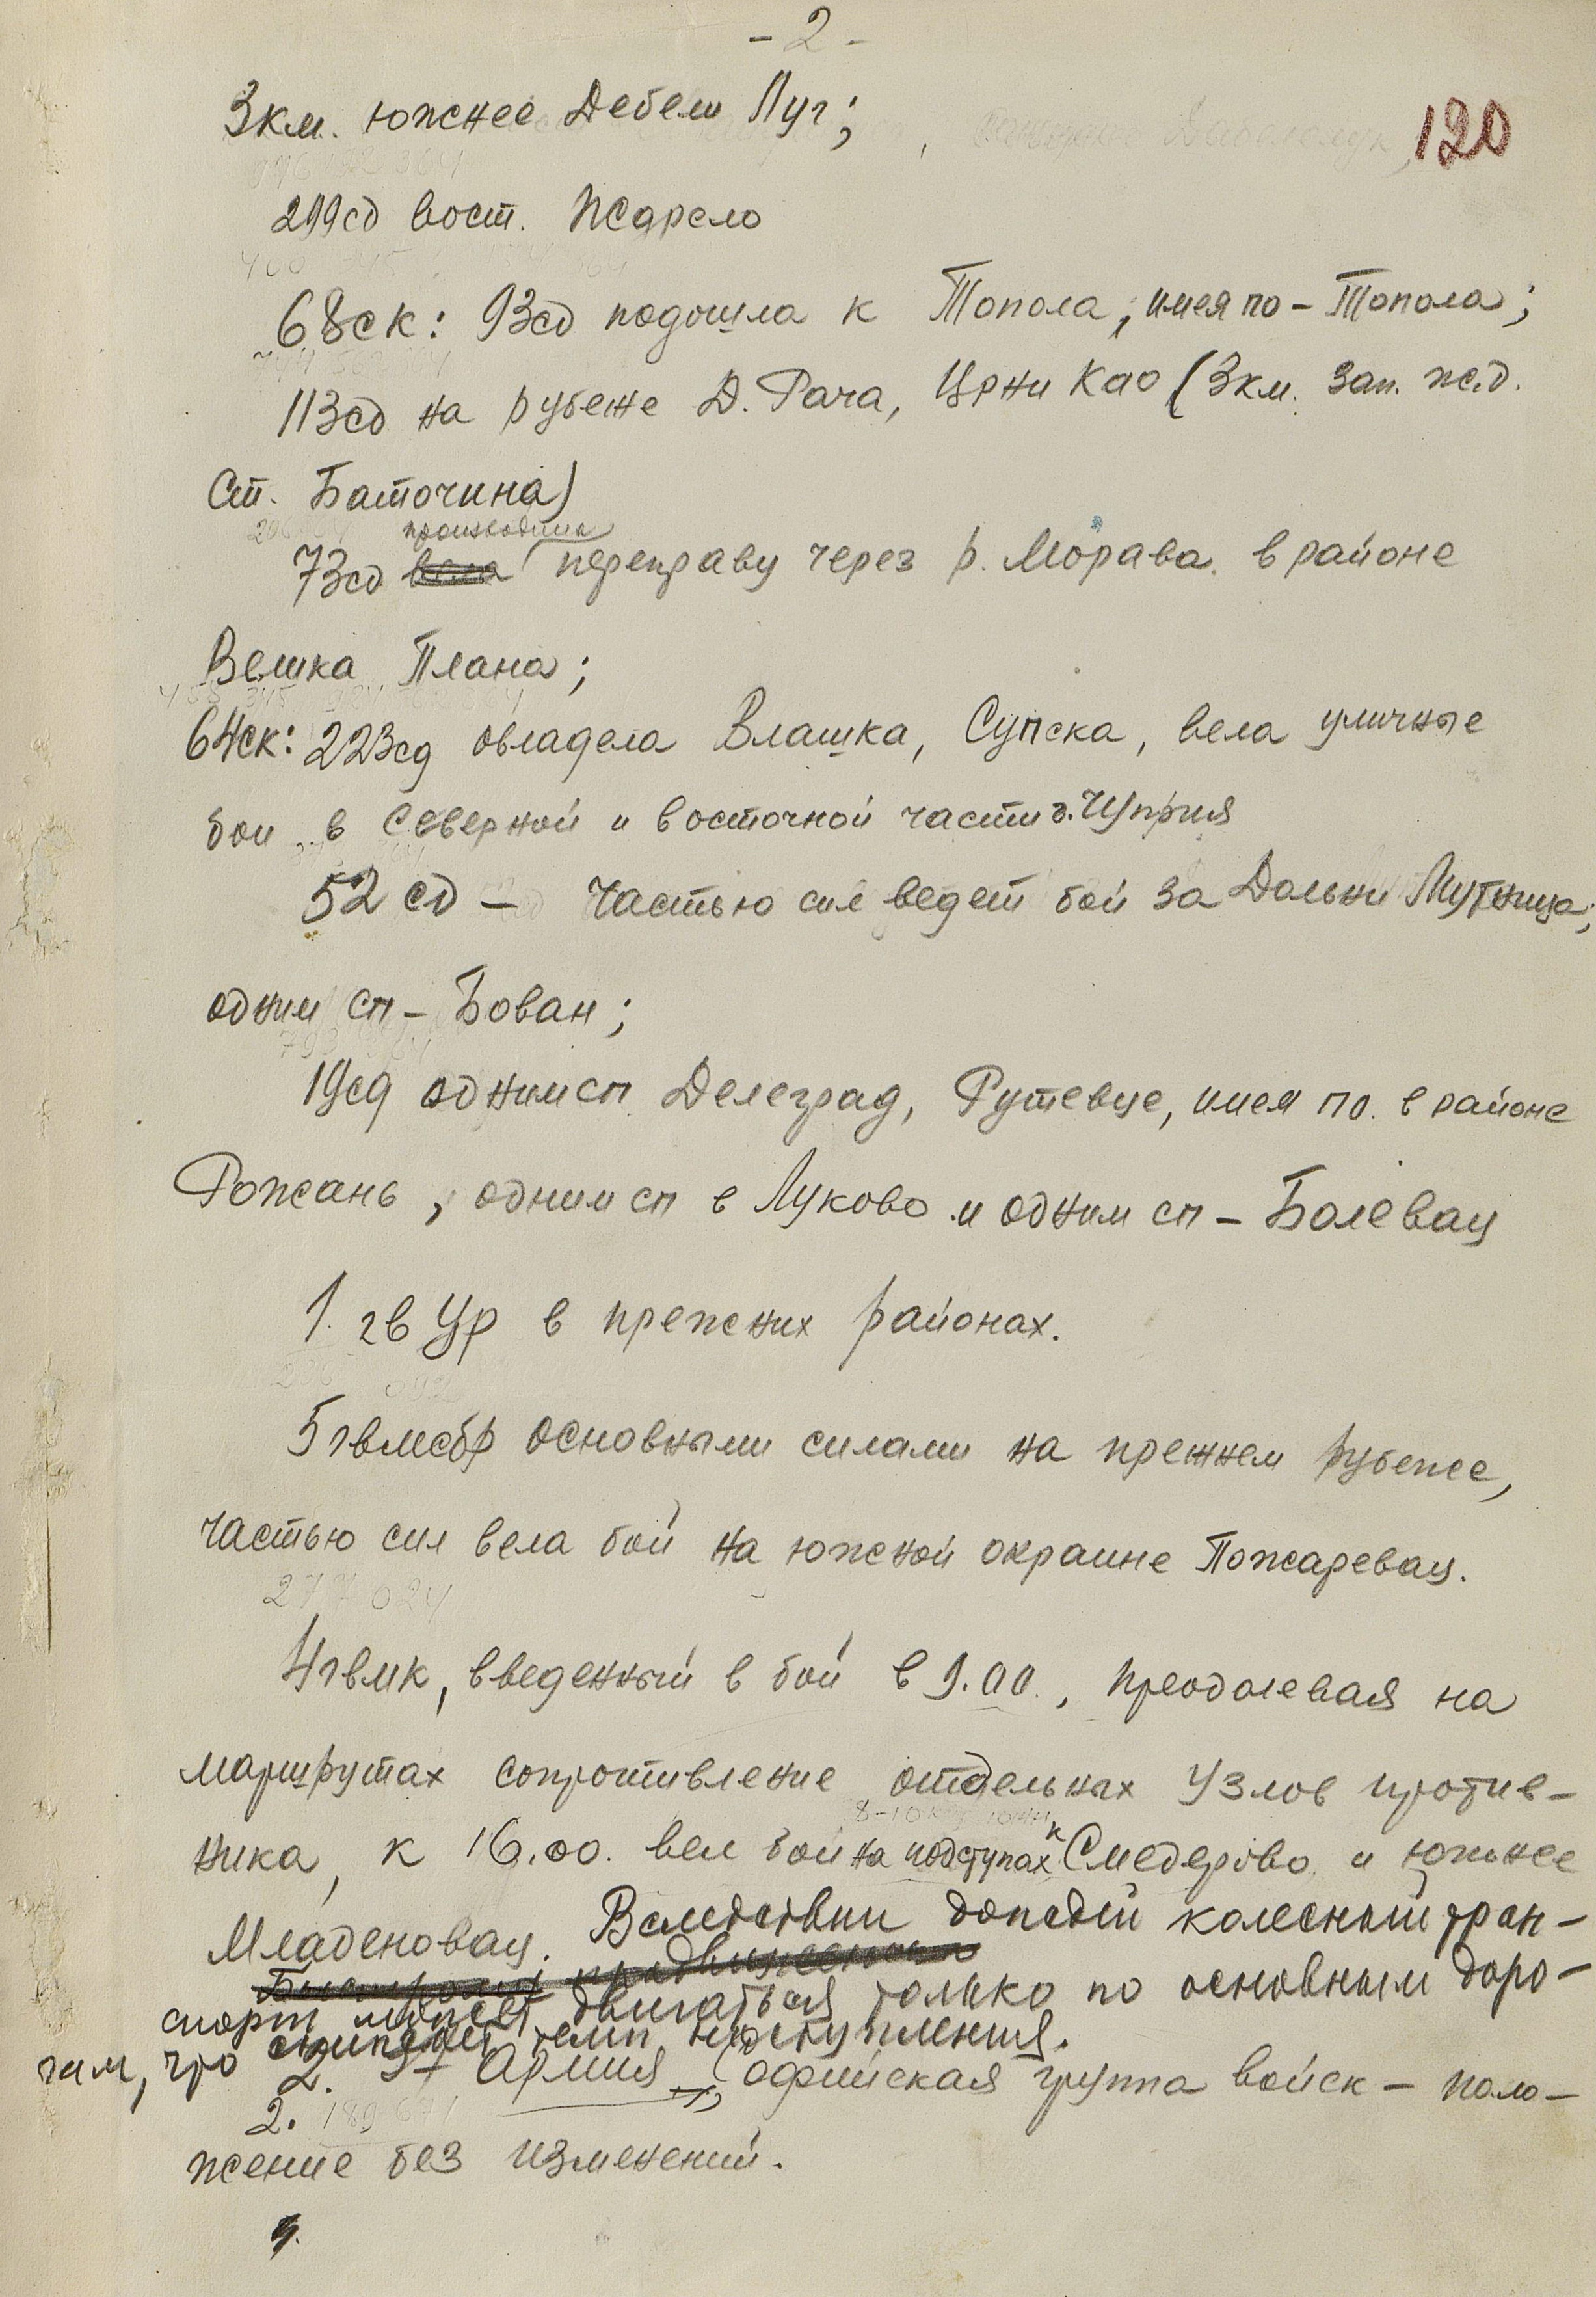 - 2 -
120
3км. южнее Дебели Луг;
299сд вост. Ждрело
68ск: 93сд подошла к Топола, имея по - Топола;
113сд на рубеже Д. Рача, Црни Као (3км. зап. ж.д.
ст. Баточина)
производила
73сд вела переправу через р. Морава в районе
Велика Плана;
64ск: 223сд овладела Влашка, Супска, вела уличные
бои в северной и восточной части г. Чуприя
52 сд - частью сил ведет бой за Дольни Мутница;
одним сп - Бован;
19сд одним сп Делеград, Рутевце, имея по. в районе
Рожань, одним сп в Луково и одним сп - Болевац
1. гв Ур в прежних районах.
5гвмсбр основными силами на прежнем рубеже,
частью сил вела бой на южной окраине Пожаревац.
277 024
4гвмк, введенный в бой в 9.00., преодолевая на
маршрутах сопротивление отдельных узлов против-
ника, к 16.00. вел бои на подступах к Смедерово и южнее
Младеновац. Вследствии дождей колесный тран-
спорт может двигаться только по основным доро-
гам, что снижает темп наступления.
2. 37 Армия, Софийская группа войск - поло-
2.
жение без изменений.